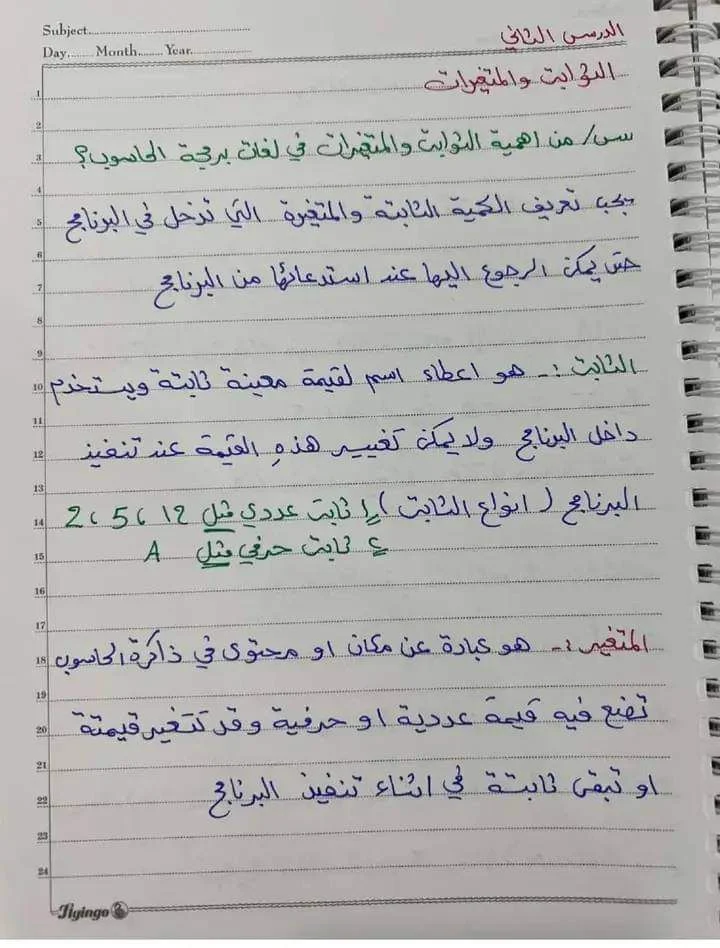 Subject
الدرس الثاني
Day Month Year
الثوابت والمتغيرات
1
2
س/ من اهمية الثوابت والمتغيرات في لغات برمجة الحاسوب؟
3
4
يجب تعريف الكمية الثابتة والمتغيرة التي تدخل في البرنامج
5
6
حتى يمكن الرجوع اليها عند استدعائها من البرنامج
7
8
9
الثابت :- هو اعطاء اسم لقيمة معينة ثابتة ويستخدم
10
11
داخل البرنامج ولا يمكن تغيير هذه القيمة عند تنفيذ
12
13
البرنامج (انواع الثابت) ١ ثابت عددي مثل 12 ، 5 ، 2
14
٢ ثابت حرفي مثل A
15
16
17
المتغير :- هو عبارة عن مكان او محتوى في ذاكرة الحاسوب
18
19
تضع فيه قيمة عددية او حرفية وقد تتغير قيمتة
20
21
او تبقى ثابتة في اثناء تنفيذ البرنامج
22
23
24
Flyingo